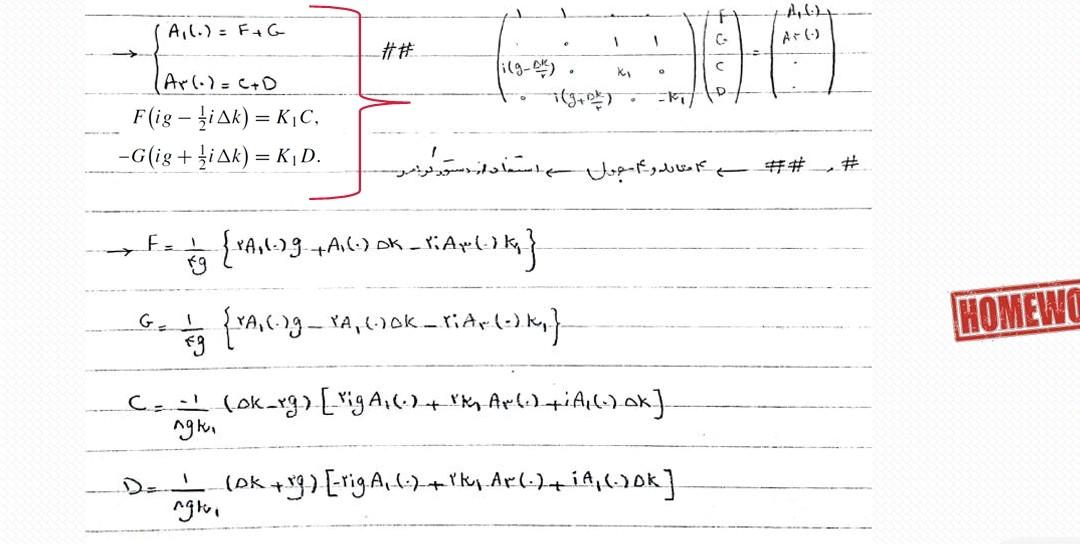 → { A₁(۰) = F + G
A۳(۰) = C + D
F(ig − ½iΔk) = K₁C,
−G(ig + ½iΔk) = K₁D.
##
( ۱ ۱ ۰ ۰
۰ ۰ ۱ ۱
i(g−Δk/۲) ۰ K₁ ۰
۰ i(g+Δk/۲) ۰ −K₁ ) ( F G C D ) = ( A₁(۰) A۳(۰) ۰ ۰ )
# , ## ← ۴ معادله و ۴ مجهول ← استفاده از دستور کرامر
→ F = ۱/۴g { ۲A₁(۰)g + A₁(۰)Δk − ۲iA۳(۰)k₁ }
G = ۱/۴g { ۲A₁(۰)g − ۲A₁(۰)Δk − ۲iA۳(۰)k₁ }
C = −۱/۸gk₁ (Δk − ۲g) [ ۲igA₁(۰) + ۲k₁A۳(۰) + iA₁(۰)Δk ]
D = ۱/۸gk₁ (Δk + ۲g) [ −۲igA₁(۰) + ۲k₁A۳(۰) + iA₁(۰)Δk ]
HOMEWO